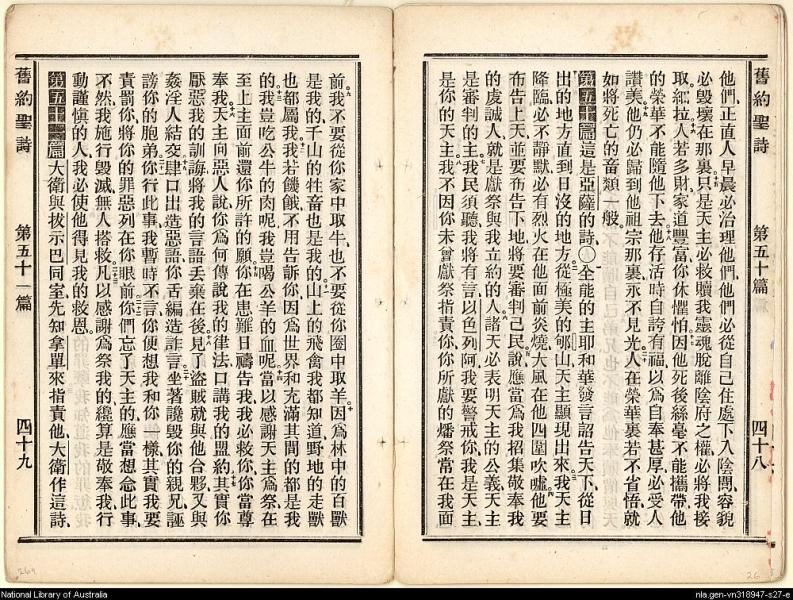 舊約聖詩 第五十篇 四十八
他們、正直人早晨必治理他們、他們必從自己住處下入陰間、容貌
必毀壞在那裏、只是天主必救贖我靈魂脫離陰府之權、必將我接
取、細拉、人若多財、家道豐富、你休懼怕、因他死後絲毫不能攜帶、他
的榮華不能隨他下去、他存活時自誇有福、以爲自奉甚厚必受人
讚美、他仍必歸到他祖宗那裏、永不見光、人在榮華裏若不省悟、就
如將死亡的畜類一般。
第五十篇 這是亞薩的詩○全能的主耶和華發言、詔告天下、從日
出的地方直到日沒的地方、從極美的郇山天主顯現出來、我天主
降臨、必不靜默、必有烈火在他面前炎燒、大風在他四圍吹噓、他要
布告上天、並要布告下地、將要審判己民、說應當爲我招集敬奉我
的虔誠人、就是獻祭與我立約的人、諸天必表明天主的公義、天主
是審判的主、我民須聽、我將有言、以色列阿、我要警戒你、我是天主、
是你的天主、我不因你未曾獻祭指責你、你所獻的燔祭當在我面
前、我不要從你家中取牛、也不要從你圈中取羊、因爲林中的百獸
是我的、千山的牲畜也是我的、山上的飛禽我都知道、野地的走獸
也都屬我、我若饑餓、不用告訴你、因爲世界和充滿其間的都是我
的、我豈吃公牛的肉呢、我豈喝公羊的血呢、當以感謝天主爲祭、在
至上主面前還你所許的願、你在患難日禱告我、我必救你、你當尊
奉我、天主向惡人說、你爲何傳說我的律法、口講我的盟約、其實你
厭惡我的訓誨、將我的言語丟棄在後、見了盜賊就與他合夥、又與
姦淫人結交、肆口出造惡語、你舌編造詐言、坐著讒毀你的親兄、誣
謗你的胞弟、你行此事、我暫時不言、你便想我和你一樣、其實我要
責罰你、將你的罪惡列在你眼前、你們忘了天主的、應當想念此事、
不然我施行毀滅、無人搭救、凡以感謝爲祭的、纔算是敬奉我、行
動謹慎的人、我必使他得見我的救恩。
第五十一篇 大衛與拔示巴同室、先知拿單來指責他、大衛作這詩、
舊約聖詩 第五十一篇 四十九
National Library of Australia
nla.gen-vn318947-s27-e